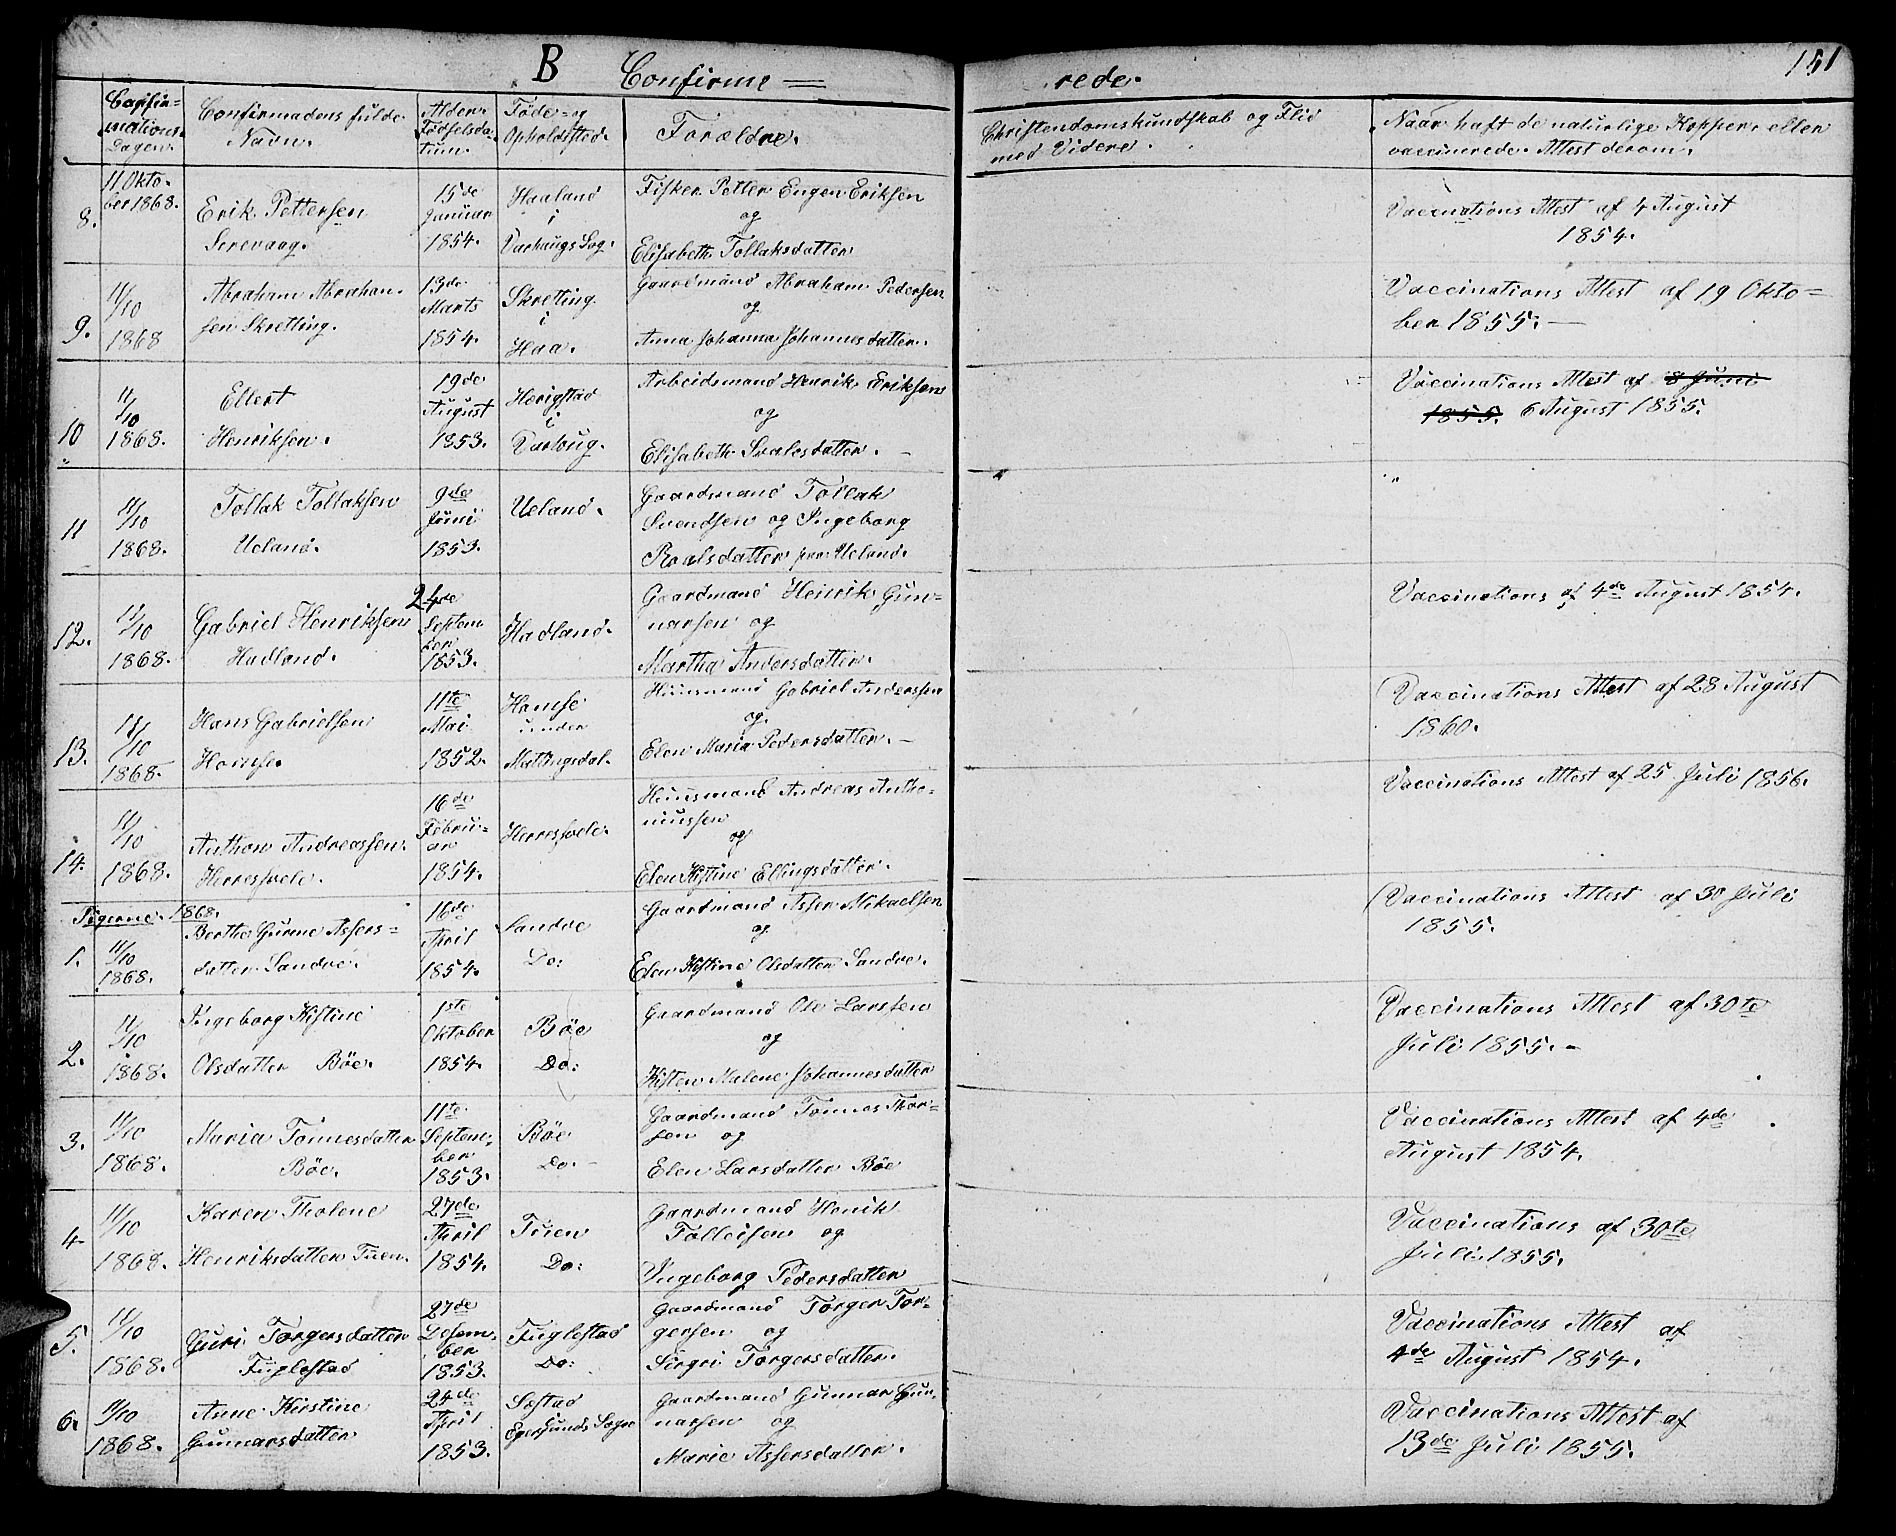 B Confirme = rede. 151
Confir= mations- Dagen. Confirmadens fulde Navn. Alder. Fødselsda- tum. Føde- og Opholdssted. Forældre. Christendomskundskab og Flid med Videre. Naar haft de naturlige Kopper eller vaccinerede. Attest derom.
8. 11 Okto- ber 1868. Erik Pettersen Sirevaag. 15de Januar 1854. Haaland i Varhaugs Sog. Fisker Petter Eugen Eriksen og Elisabeth Tollaksdatter Vaccinations Attest af 4 August 1854.
9. 11/10 1868 Abraham Abraham- sen Skretting. 13de Marts 1854. Skretting i Haa. Gaardmand Abraham Pedersen og Anna Johanna Johannesdatter. Vaccinations Attest af 19 Okto= ber 1855. —
10 11/10 1868. Ellert Henriksen. 19de August 1853. Hærigstad i Varhoug. Arbeidsmand Henrik Eriksen og Elisabeth Svalesdatter. Vaccinations Attest af 8 Juni 1855. 6 August 1855.
11 11/10 1868. Tollak Tollaksen Ueland. 9de Juni 1853. Ueland. Gaardmand Tollak Svendsen og Ingeborg Roalsdatter paa Ueland. "
12. 11/10 1868. Gabriel Henriksen Hadland. 24de Septem ber 1853. Hadland. Gaardmand Henrik Gun= narsen og Martha Andersdatter. Vaccinations af 4de August 1854.
13. 11/10 1868. Hans Gabrielsen Homse. 11te Mai 1852. Homse under Mattingsdal. Huusmand Gabriel Anderssen og Elen Maria Pedersdatter. — Vaccinations Attest af 28 August 1860.
14. 11/10 1868. Anthon Andreassen. Herresvele. 16de Febru- ar 1854. Herresvele. Huusmand Andreas Antho- niussen og Elen Kistine Ellingsdatter. Vaccinations Attest af 25 Juli 1856.
Pigerne. 1868.
1. 11/10 1868. Berthe Gurine Assers= datter Sandve. 16de April 1854. Sandve Do: Gaardmand Asser Mikaelsen og Elen Kistine Olsdatter Sandve. Vaccinations Attest af 30 Juli 1855.
2. 11/10 1868. Ingeborg Kistine Olsdatter Böe. 1ste Oktober 1854. Böe Do: Gaardmand Ole Larssen og Kisten Malene Johannesdatter Vaccinations Attest af 30te Juli 1855. -
3. 11/10 1868. Maria Tönnesdatter Böe. 11te Septem- ber 1853. Böe Do. - Gaardmand Tönnes Thor= sen og Elen Larsdatter Böe Vaccinations Attest af 4de August 1854.
4. 11/10 1868. Karen Tholene Henriksdatter Tuen. 27de April 1854. Tuen Do: Gaardmand Henrik Tolleisen og Ingeborg Pedersdatter Vaccinations af 30te Juli 1855.
5. 11/10 1868. Guri Torgersdatter Fuglestad 27de Desem- ber 1853. Fuglestad Do: Gaardmand Torger Tor- gersen og Sirgri Torgersdatter. Vaccinations Attest af 4de August 1854.
6. 11/10 1868. Anne Kirstine Gunnarsdatter 24de April 1853. Sæstad Egersunds Sogn Gaardmand Gunnar Gun- narsen og Marie Assersdatter. Vaccinations Attest af 13de Juli 1855.